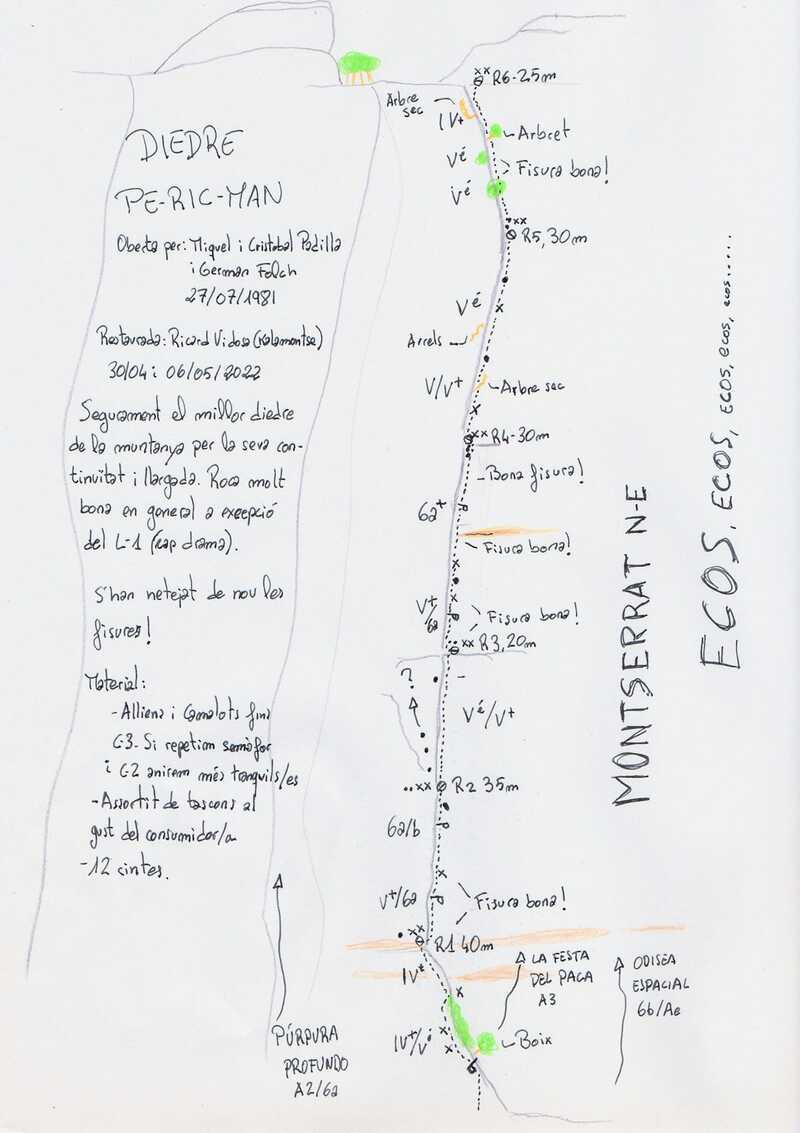 DIEDRE
PE-RIC-MAN
Oberta per: Miquel i Cristobal Padilla
i German Folch
27/07/1981
Restaurada: Ricard Vidosa (Kalamontse)
30/04 i 06/05/2022
Segurament el millor diedre
de la muntanya per la seva con-
tinuïtat i llargada. Roca molt
bona en general a excepció
del L-1 (cap drama).
S'han netejat de nou les
fisures!
Material:
-Alliens i Camalots fins
C-3. Si repetim semàfor
i C-2 anirem més tranquils/es
-Assortit de tascons al
gust del consumidor/a
-12 cintes.
PÚRPURA
PROFUNDO
A2/6a
R6-25m
Arbre
sec
IV+
Arbret
Vé
Fisura bona!
Vé
R5, 30m
Vé
Arrels
V/V+
Arbre sec
R4-30m
Bona fisura!
6a+
Fisura bona!
V+
/6a
Fisura bona!
R3, 20m
?
Vé/V+
R2 35m
6a/b
V+/6a
Fisura bona!
R1 40m
IV+
IV+/Vé
Boix
LA FESTA
DEL PACA
A3
ODISEA
ESPACIAL
6b/Ae
MONTSERRAT N-E
ECOS, ECOS, ECOS, ecos, ecos.....